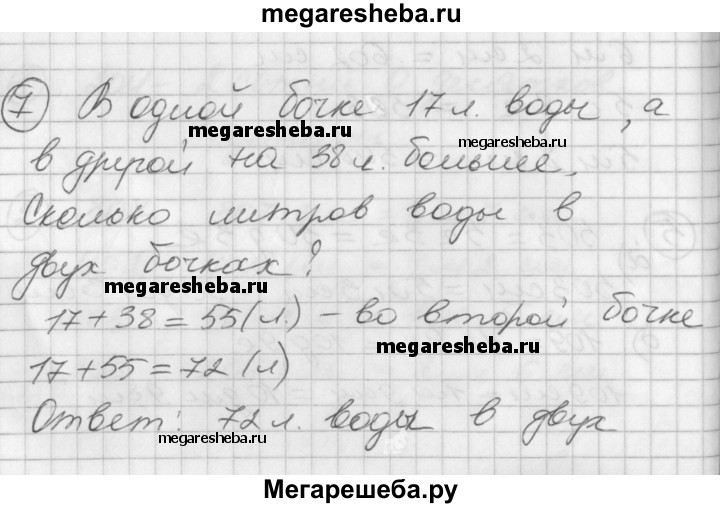 megaresheba.ru
7 В одной бочке 17 л. воды, а
megaresheba.ru
megaresheba.ru
в другой на 38 л. больше.
Сколько литров воды в
двух бочках?
megaresheba.ru
17 + 38 = 55 (л.) - во второй бочке
megaresheba.ru
17 + 55 = 72 (л)
Ответ: 72 л. воды в двух
megaresheba.ru
Мегарешеба.ру